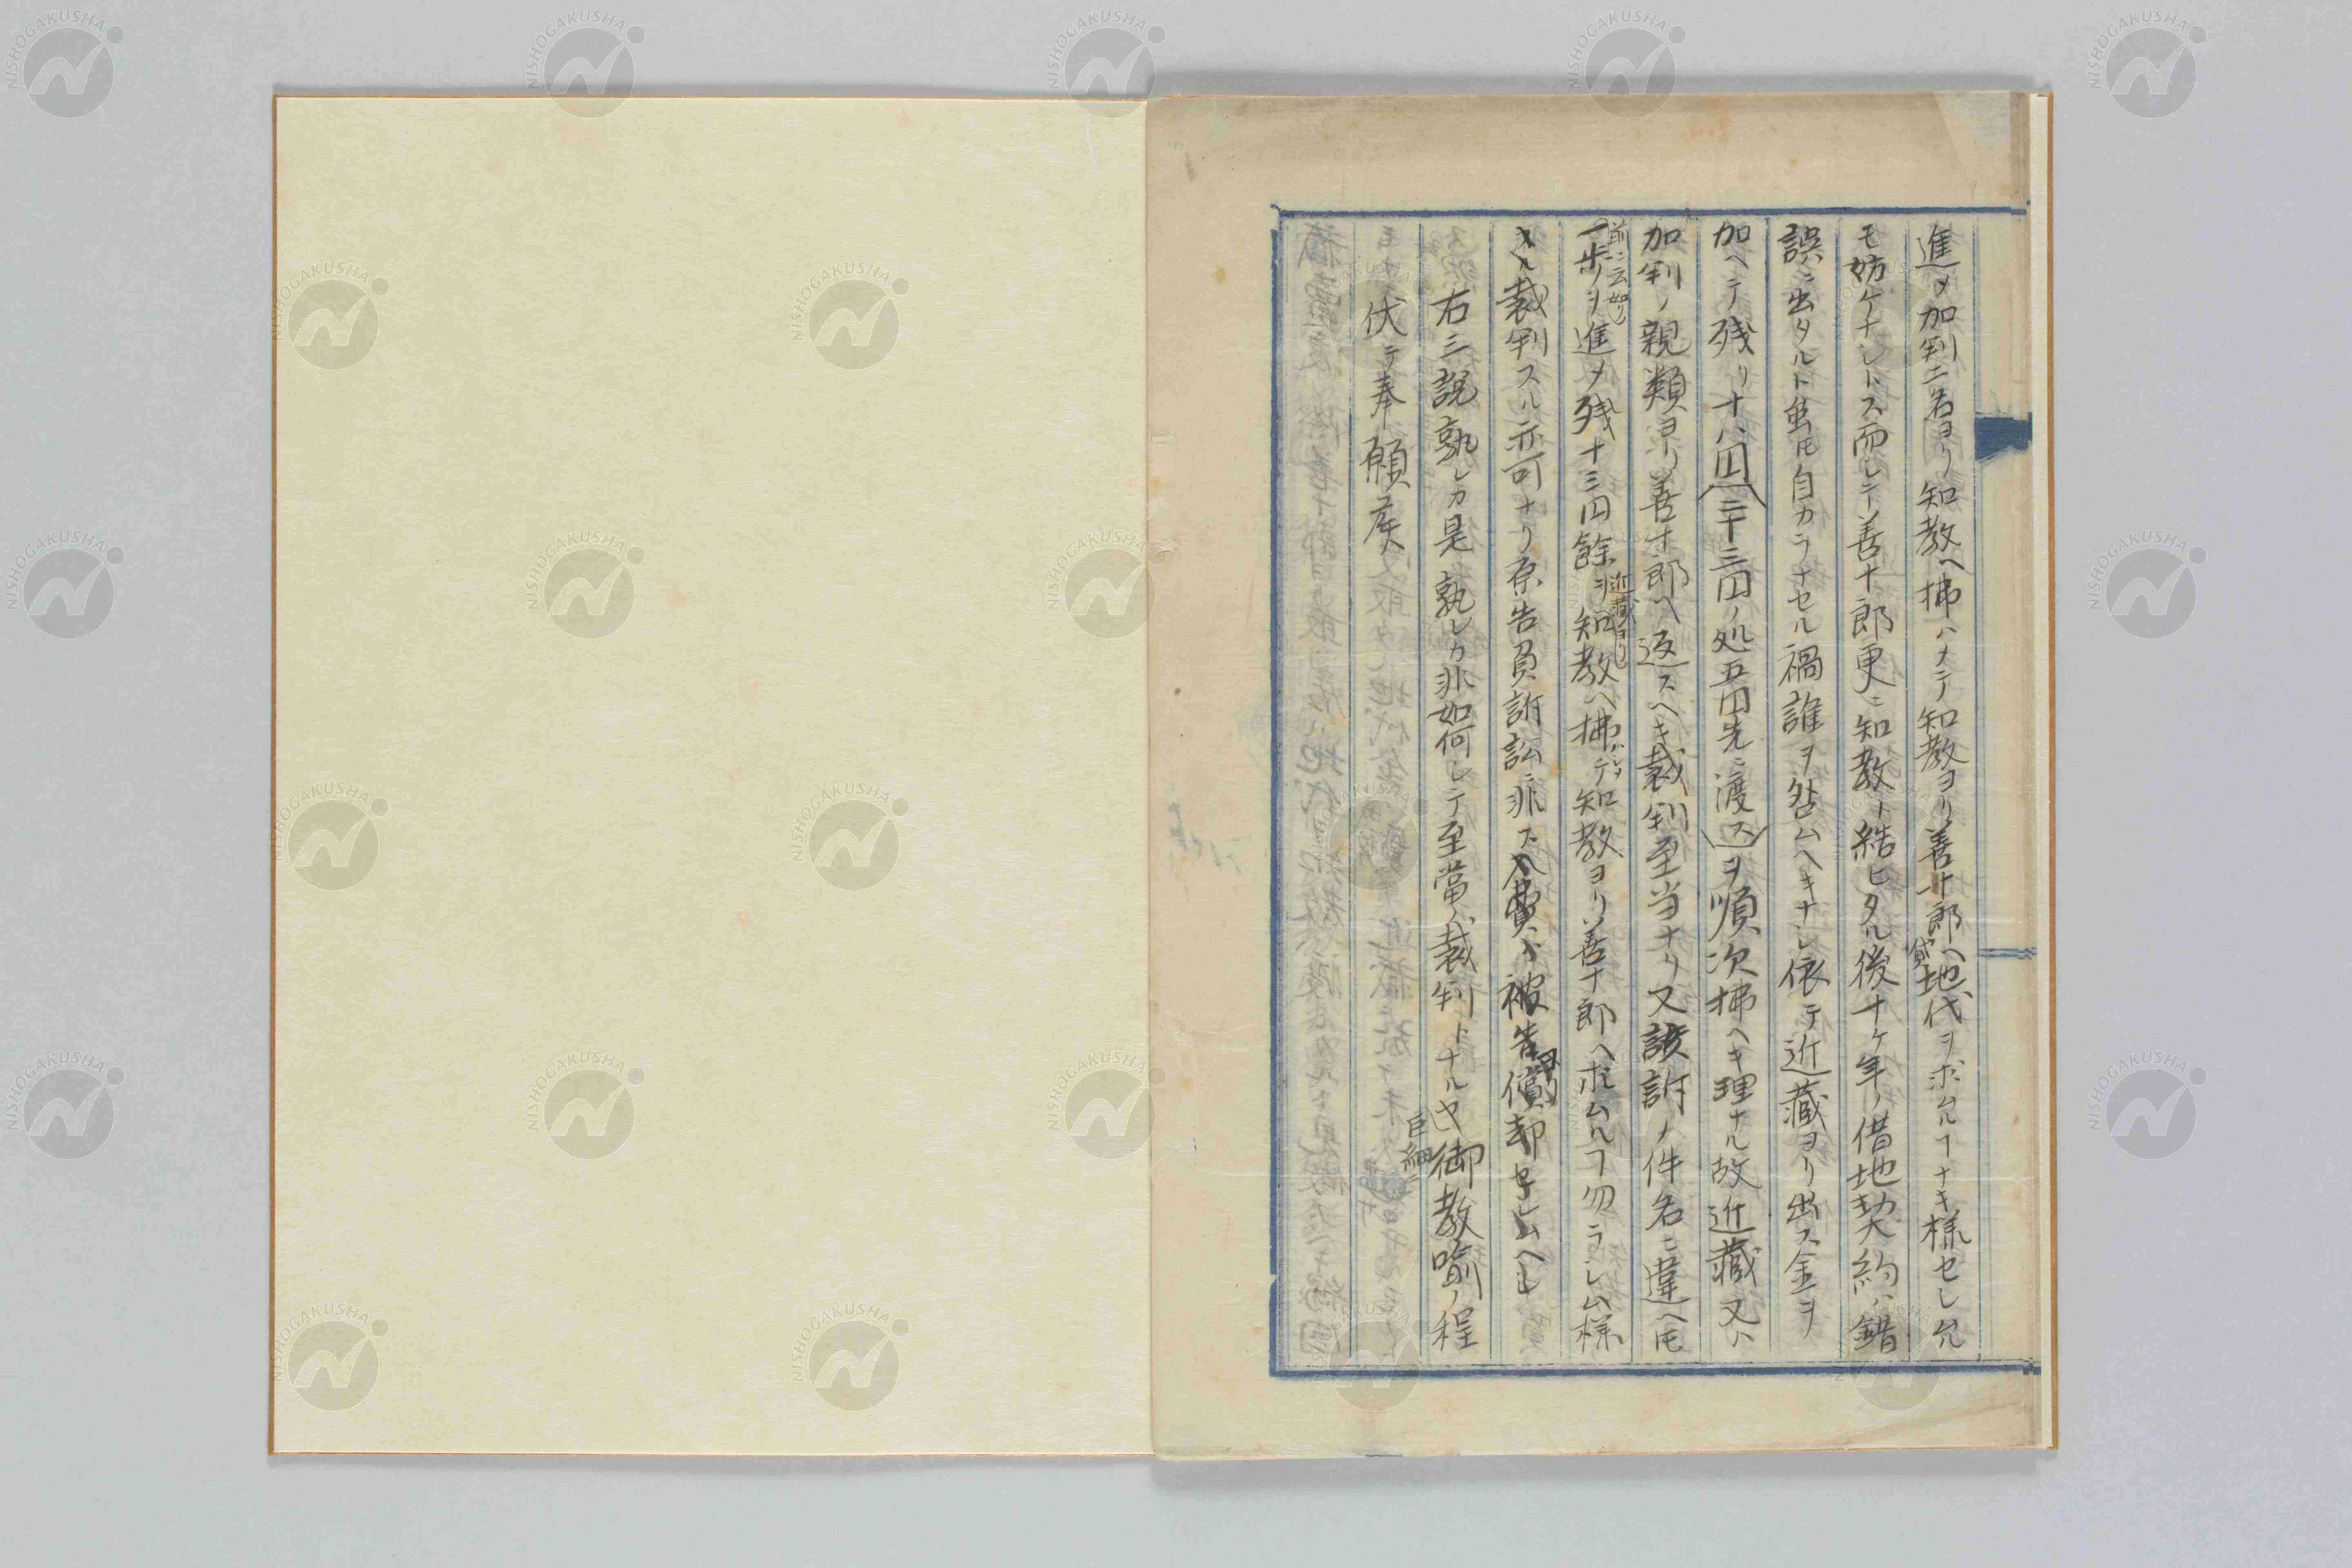 進メ加判二名ヨリ知教ヘ拂ハメテ知教ヨリ善十郎ヘ貸地代ヲ求ムルヿナキ様セシ允
モ妨ケナシトス而シテ善十郎更ニ知教ト結ヒタル後十ケ年ノ借地契約ハ錯
誤ニ出タルト虽モ自カラナセル禍誰ヲ咎ムヘキナシ依テ近藏ヨリ出ス金ヲ
加ヘテ残リ十八円(二十三円ノ処五円先ニ渡ス)ヲ順次拂ヘキ理ナル故近藏又ハ
加判ノ親類ヨリ善十郎ヘ返スヘキ裁判至当ナリ又該訴ノ件名ニ違ヘ𪜈
前ニ云如ク
一歩ヲ進メ残十三円餘ヲ近藏ヨリ知教ヘ拂ハシメテ知教ヨリ善十郎ヘ求ムルヿ勿ラシム様
裁判スル亦可ナリ原告負訴訟ニ非ス入費ハ被告ヨリ償却セシムヘシ
右三説孰レカ是孰レカ非如何シテ至當ノ裁判トナルヤ巨細ニ御教喩ノ程
伏テ奉願候
NISHOGAKUSHA